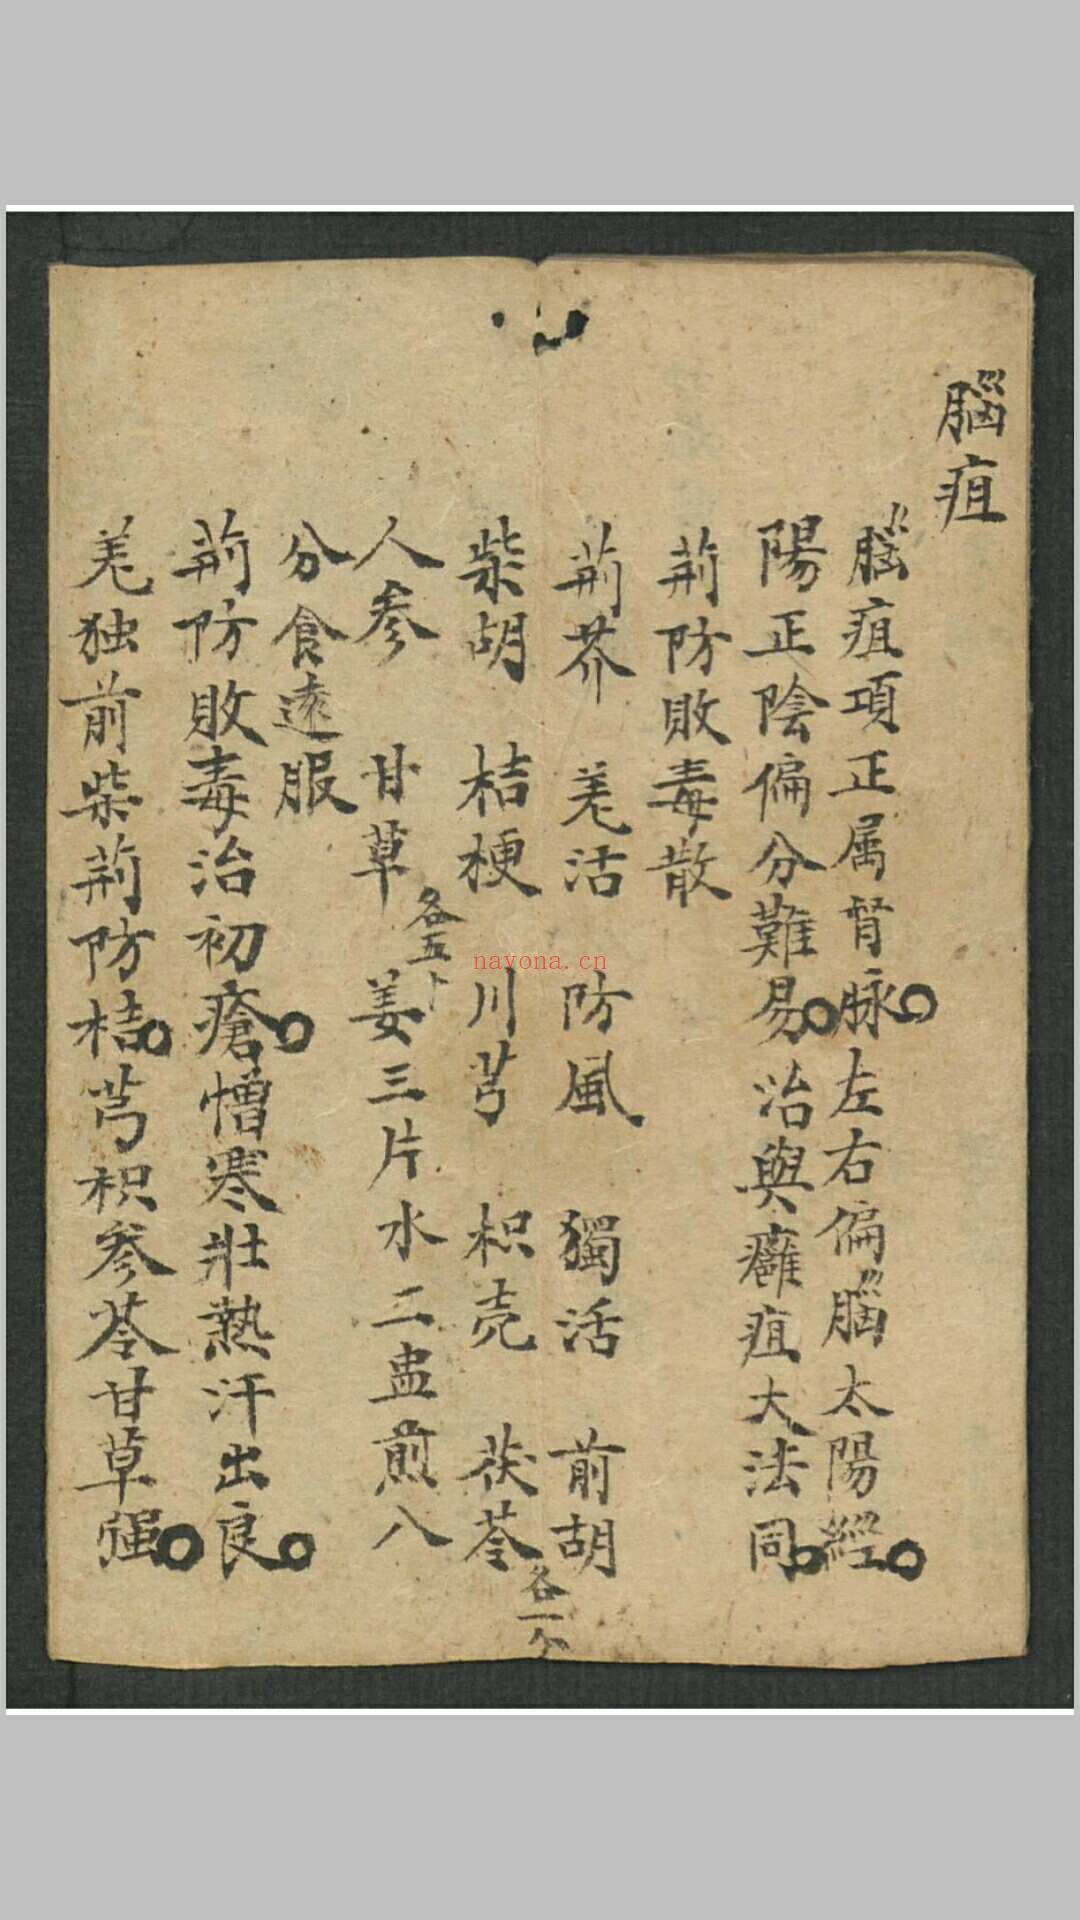 腦疽
腦疽項正属督脉左右偏腦太陽經
陽正陰偏分難易治與癰疽大法同
荊防敗毒散
荊芥 羌活 防風 獨活 前胡
柴胡 桔梗 川芎 枳壳 茯苓各一
人參 甘草各五 姜三片水二盅煎八
分食遠服
荊防敗毒治初瘡憎寒壯熱汗出良
羌独前柴荊防桔芎枳參苓甘草强
nayona.cn